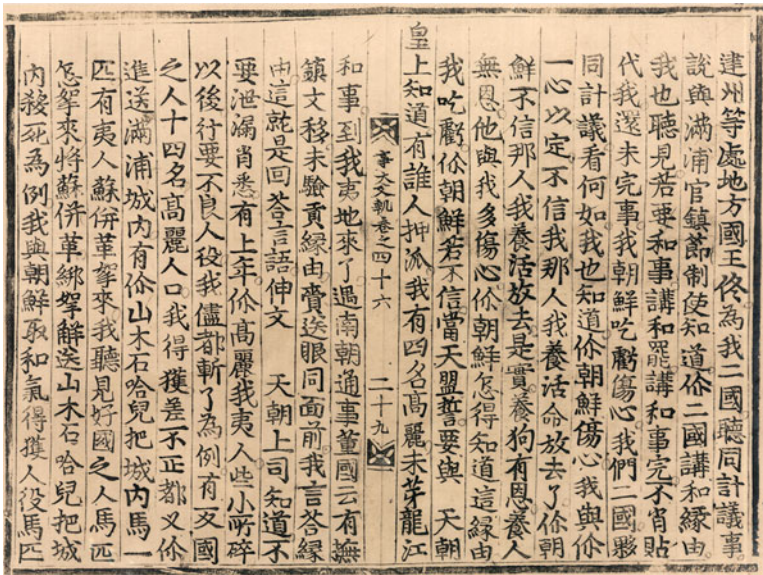 建州等處地方國王佟為我二國聽同計議事
說與滿浦官鎮節制使知道伱二國講和緣由
我也聽見若要和事講和罷講和事完不肖貼
代我還未完事我朝鮮吃虧傷心我們二國夥
同計議看何如我也知道伱朝鮮傷心我與伱
一心以定不信我那人我養活命放去了伱朝
鮮不信那人我養活放去是實養狗有恩養人
無恩他與我多傷心伱朝鮮怎得知道這緣由
我吃虧伱朝鮮若不信當天盟誓要與 天朝
皇上知道有誰人押派我有四名高麗未芽龍江
事大文軌卷之四十六 二十九
和事到我夷地來了過南朝通事董國云有撫
鎮文移未驗貢緣由賫送眼同面前我言答緣
由這就是回答言語伸文 天朝上司知道不
要泄漏肖悉有上年伱高麗我夷人些小所碎
以後行要不良人役我儘都斬了為例有反國
之人十四名高麗人口我得獲差不正都又伱
進送滿浦城內有伱山木石哈兒把城內馬一
匹有夷人蘇倂革拏來我聽見好國之人馬匹
怎拏來將蘇倂革綁拏解送山木石哈兒把城
內殺死為例我與朝鮮取和氣得獲人役馬匹